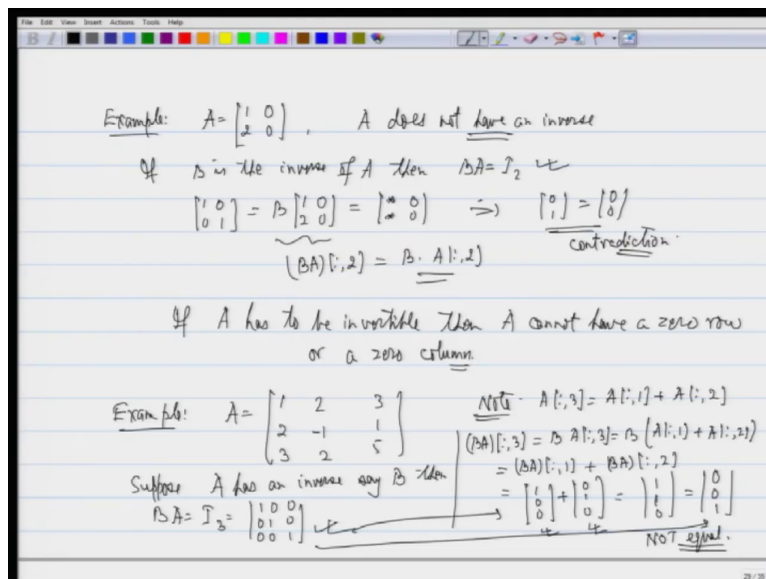 File Edit View Insert Actions Tools Help
B I
Example: A = [1 0; 2 0], A does not have an inverse
If B is the inverse of A then BA = I₂
[1 0; 0 1] = B [1 0; 2 0] = [* 0; * 0] ⇒ [0; 1] = [0; 0]
contradiction.
(BA)[:,2] = B. A[:,2]
If A has to be invertible then A cannot have a zero row
or a zero column.
Example: A = [1 2 3; 2 -1 1; 3 2 5]
Suppose A has an inverse say B then
BA = I₃ = [1 0 0; 0 1 0; 0 0 1]
Note. A[:,3] = A[:,1] + A[:,2]
(BA)[:,3] = B A[:,3] = B (A[:,1] + A[:,2])
= (BA)[:,1] + (BA)[:,2]
= [1; 0; 0] + [0; 1; 0] = [1; 1; 0] = [0; 0; 1]
NOT equal.